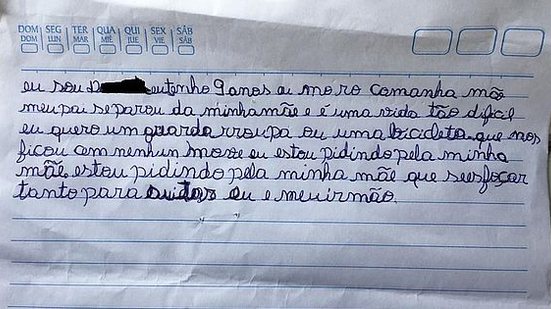 DOM SEG TER QUA QUI SEX SÁB
DOM LUN MAR MIÉ JUE VIE SÁB
eu sou eutenho 9 anos eu moro comanha mãe
meu pai separou da minha mãe e é uma vida tão dificil
eu quero um guarda rroupa ou uma bicicleta que nos
ficou com nenhun move eu estou pidindo pela minha
mãe estou pidindo pela minha mãe que se esfoçar
tanto para cuidar eu e meu irmão.